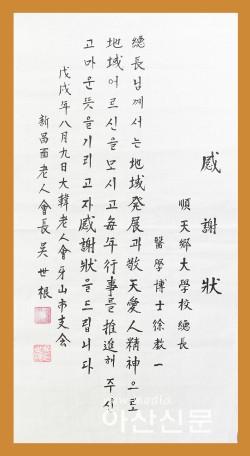 感謝狀
順天鄕大學校總長
醫學博士徐教一
總長님께서는地域發展과敬天愛人精神으로
地域어르신을모시고每年行事를推進해주시
고마운뜻을기리고자感謝狀을드립니다
戊戌年八月九日大韓老人會牙山市支会
新昌面老人會長吳世根
아산신문